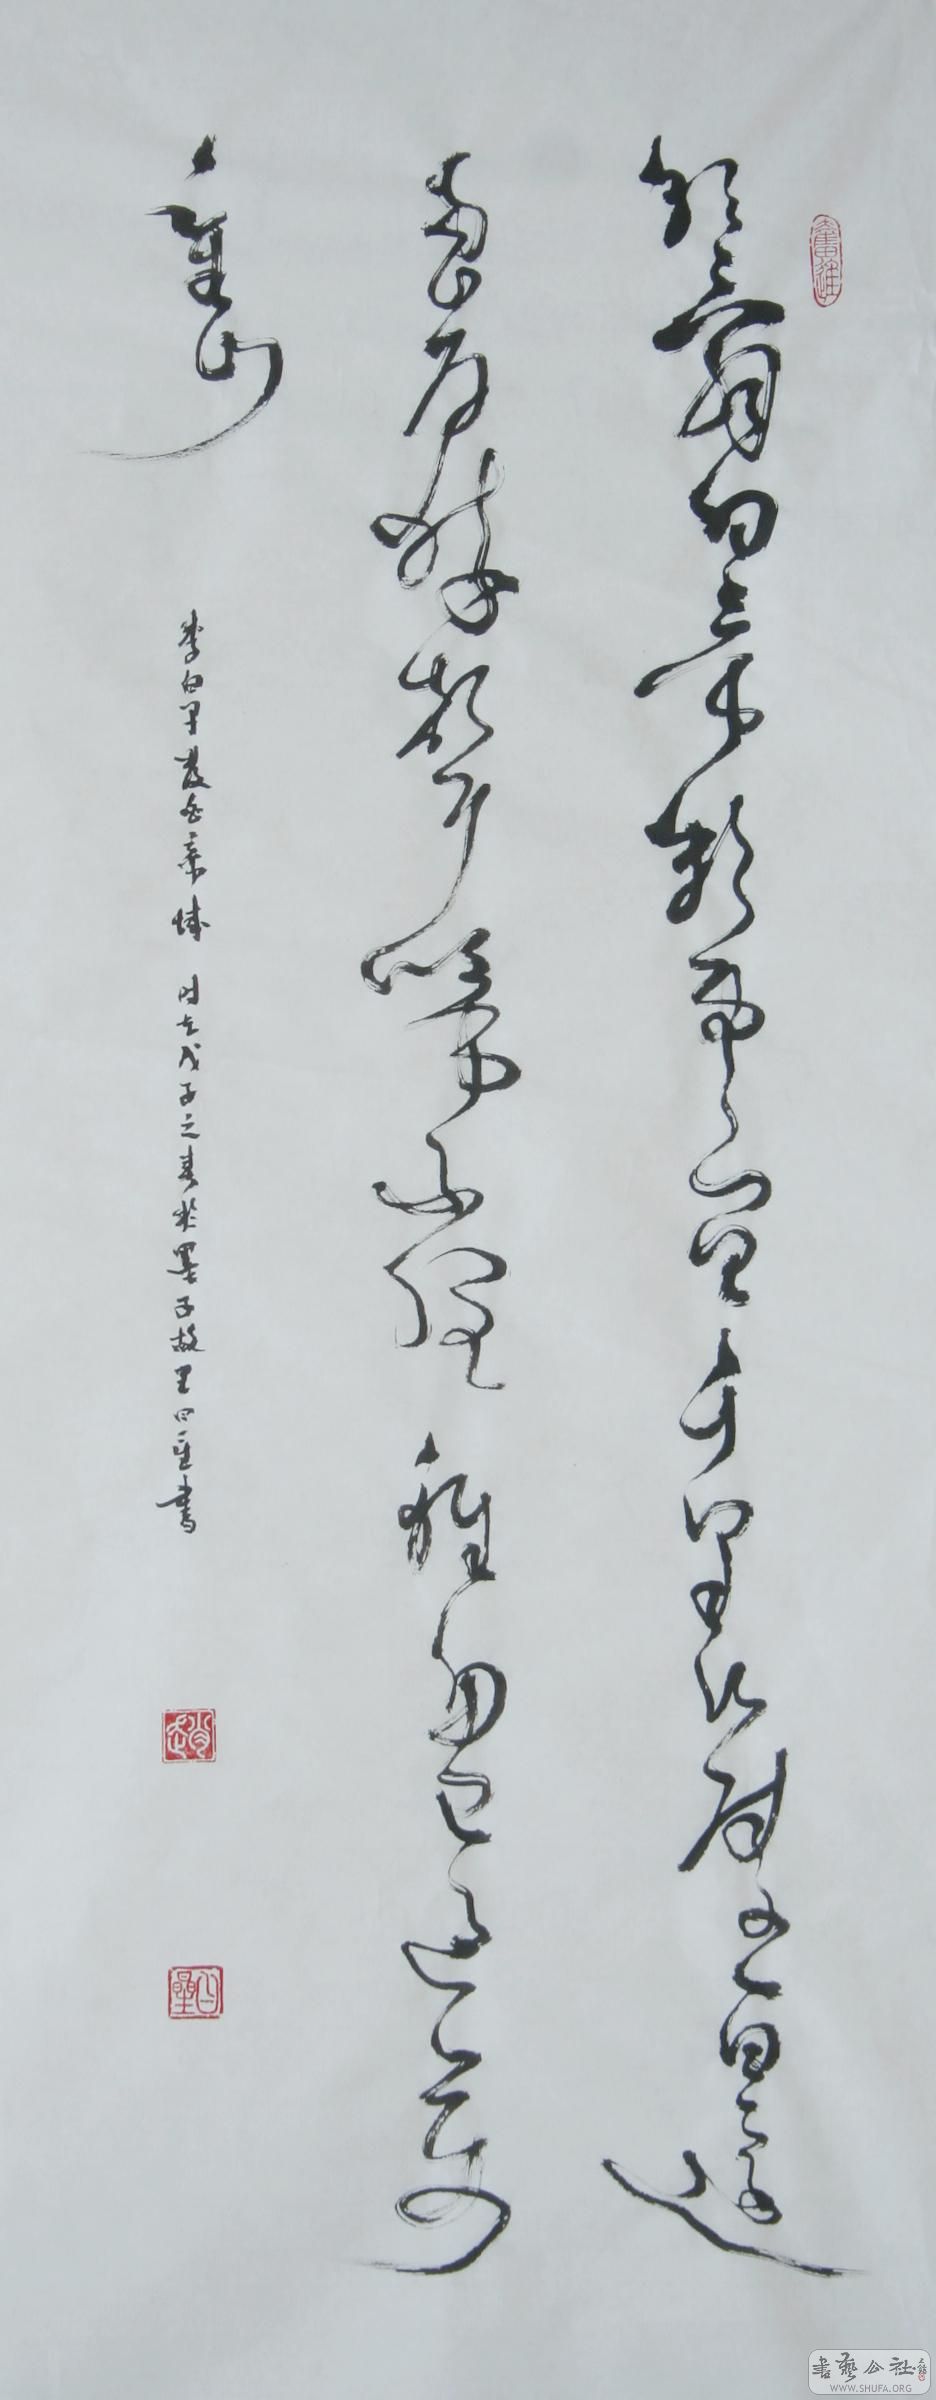 奮進
朝辭白帝彩雲間千里江陵一日還
兩岸猿聲啼不住輕舟已過萬
重山
李白早發白帝城 時在戊子之春於墨子故里書
趙
書藝公社
WWW.SHUFA.ORG